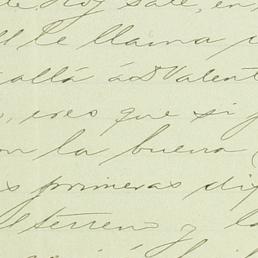 de hoy sale, en
te llama
allá á Dn Valent
eres que si
on la buena
s primeras dif
l terreno y la